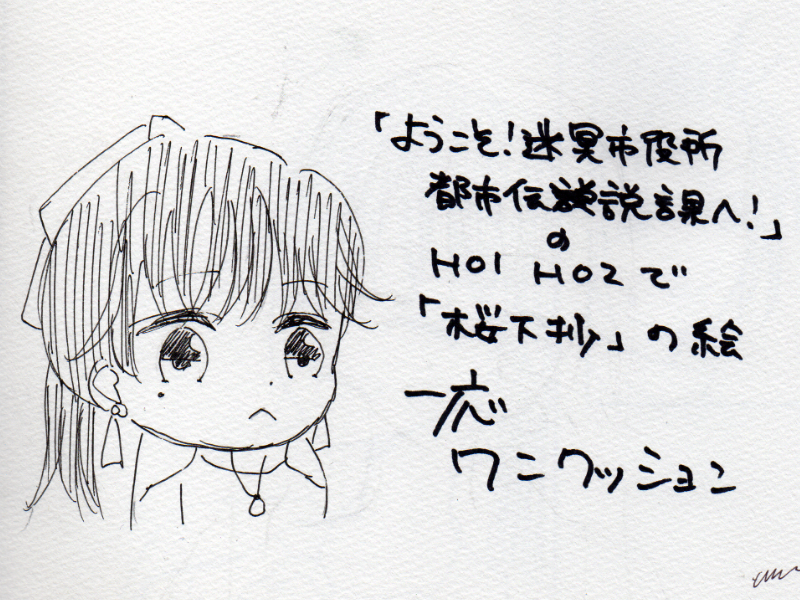 「ようこそ!迷冥市役所
都市伝説課へ!」
の
HO1 HO2で
「桜下抄」の絵
一応
ワンクッション